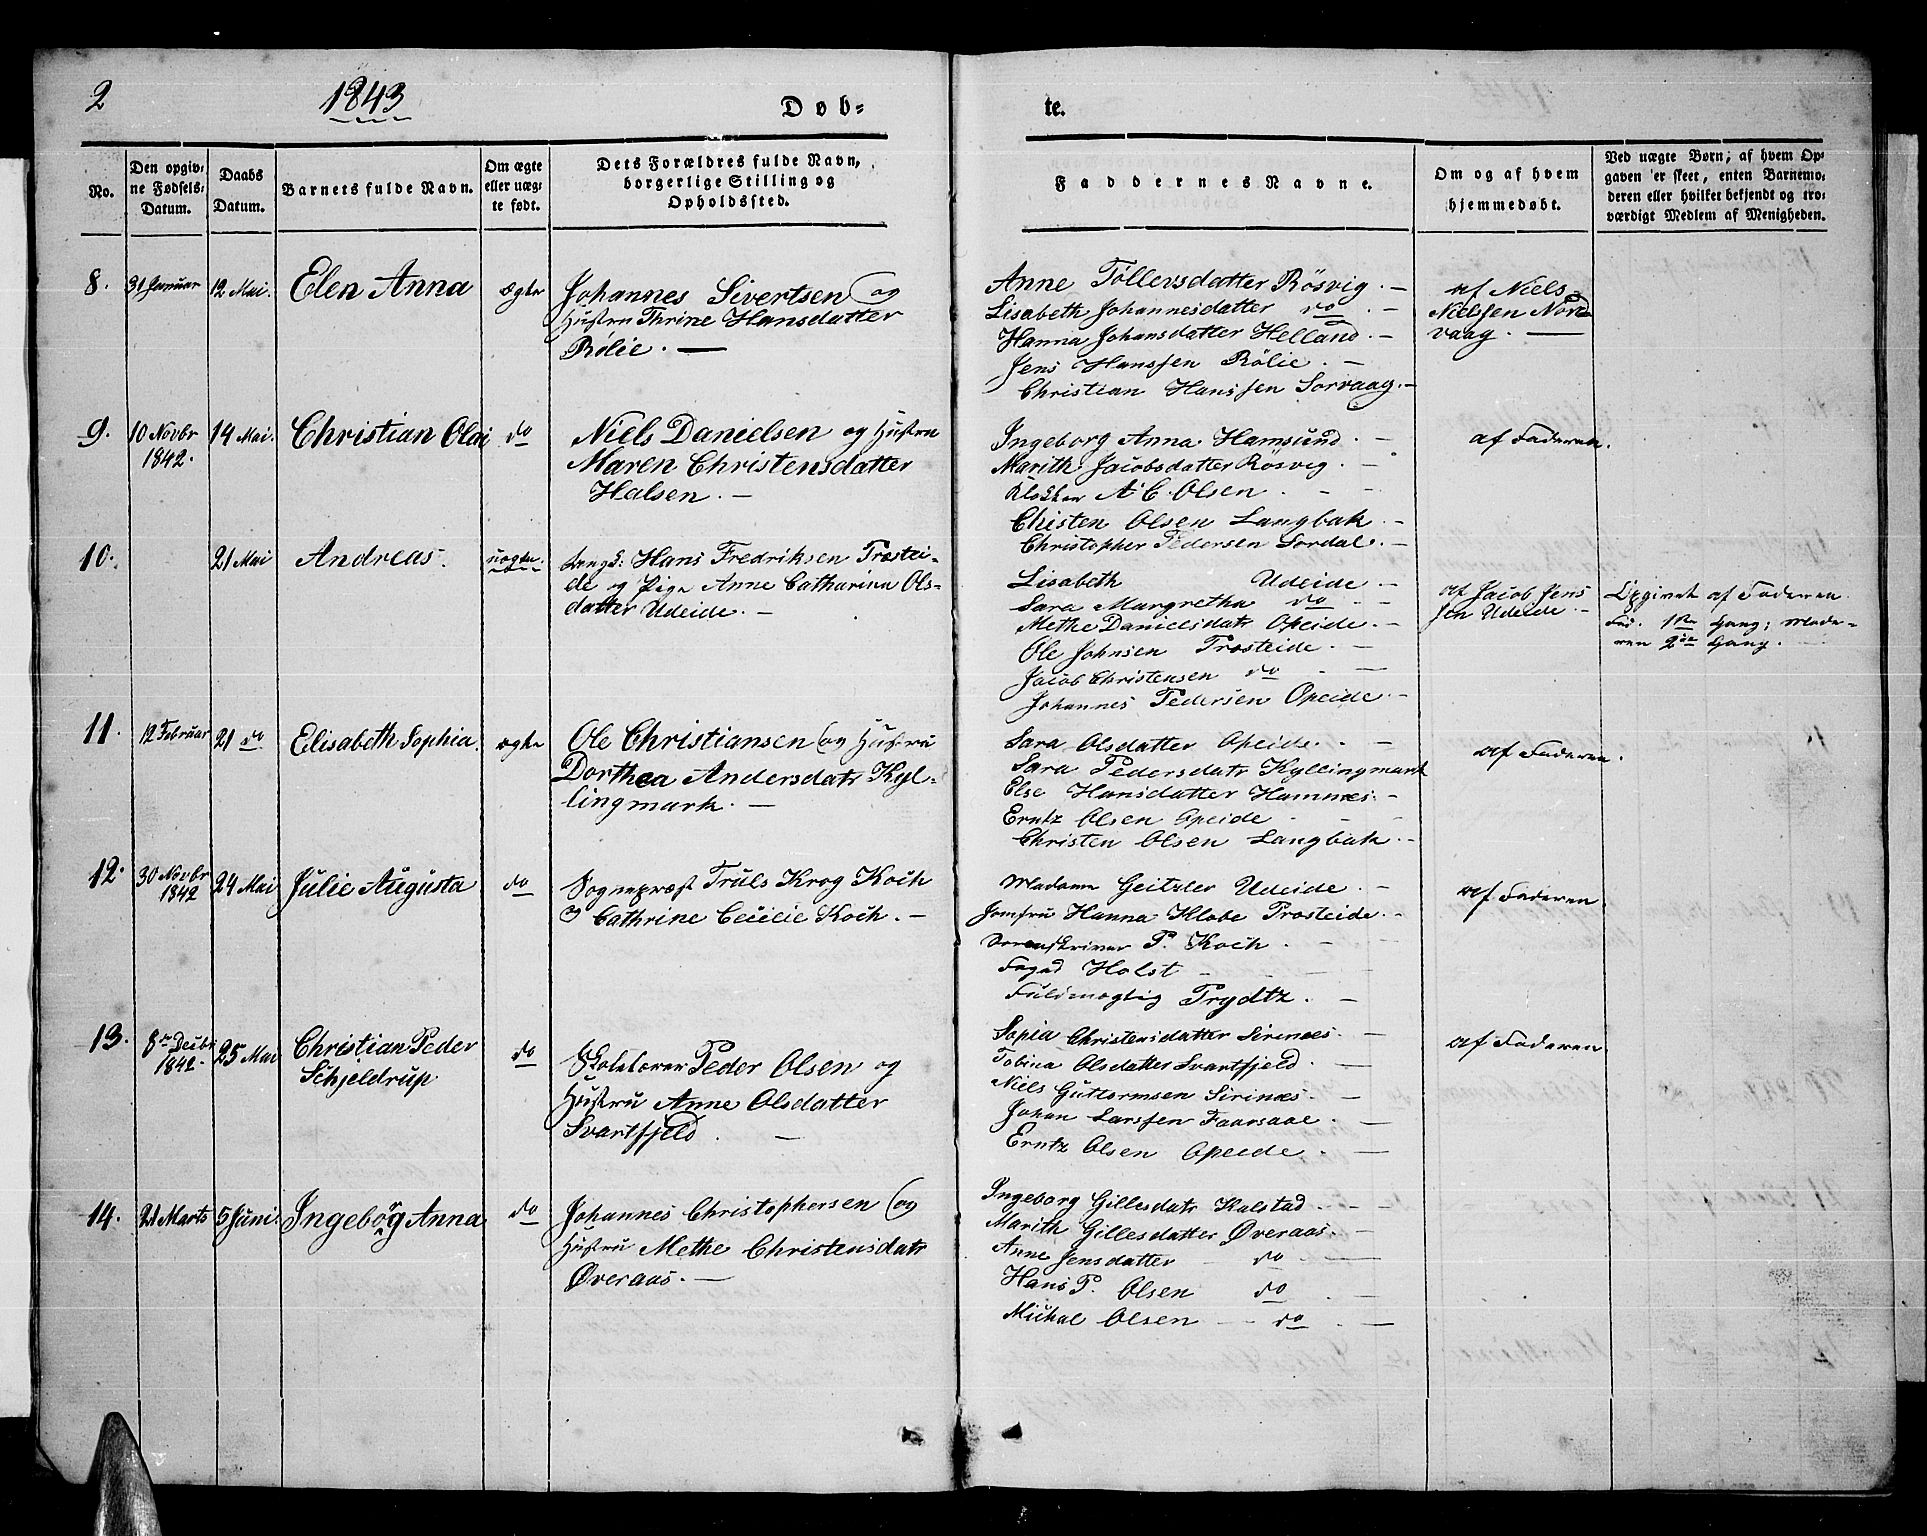 2
1843
Døb-
te.
No.
Den opgiv-
ne Fødsels-
Datum.
Daabs
Datum.
Barnets fulde Navn.
Om ægte
eller uæg-
te født.
Dets Forældres fulde Navn,
borgerlige Stilling og
Opholdssted.
Faddernes Navne.
Om og af hvem
hjemmedøbt.
Ved uægte Børn; af hvem Op-
gaven er skeet, enten Barnemo-
deren eller hvilket bekjendt og tro-
værdigt Medlem af Menigheden.
8.
31 Januar
12 Mai.
Elen Anna
ægte
Johannes Sivertsen og
Hustru Thrine Hansdatter
Rølie. —
Anne Tøllersdatter Rösvig. —
Lisabeth Johannesdatter do. —
Hanna Johansdatter Helland. —
Jens Hanssen Rölie. —
Christian Hanssen Sorvaag. —
af Niels
Nielsen Nord-
vaag. —
9.
10 Novbr
1842.
14 Mai.
Christian Olai
do
Niels Danielsen og Hustru
Maren Christensdatter
Halsen. —
Ingeborg Anna Hamsund. —
Marith Jacobsdatter Rösvig. —
Klokker A. C. Olsen. —
Christen Olsen Langbak. —
Christopher Pedersen Sordal. —
af Faderen.
10.
21 Mai
Andreas.
uægte.
Hans Fredriksen Trostei-
de og Pige Anne Catharina Ols-
datter Udeide. —
Lisabeth Udeide —
Sara Margretha do. —
Methe Danielsdatr Opeide. —
Ole Johnsen Trosteide. —
Jacob Christensen do. —
Johannes Pedersen Opeide. —
af Jacob Jens
sen Udeide. —
Opgivet af Faderen.
Fad. 1ste Gang; Mode-
ren 2den Gang.
11.
12 Februar
21 do
Elisabeth Sophia.
ægte
Ole Christiansen og Hustru
Dorthea Andersdatr Kyl-
lingmark. —
Sara Olsdatter Opeide. —
Sara Pedersdatr Kyllingmark
Else Hansdatter Hamnes. —
Erntz Olsen Opeide. —
Christen Olsen Langbak. —
af Faderen.
12.
30 Novbr
1842
24 Mai
Julie Augusta
do
Sognepræst Truls Krog Koch
og Cathrine Cecilie Koch. —
Madame Geitzler Udeide. —
Jomfru Hanna Klobe Trosteide. —
Sorenskriver P. Koch. —
Foged Holst —
Fuldmægtig Prydtz. —
af Faderen.
13.
8de Decbr
1842.
25 Mai
Christian Peder
Schjeldrup
do
Skolelærer Peder Olsen og
Hustru Anne Olsdatter
Svartfjeld. —
Sopia Christensdatter Sirines. —
Tobina Olsdatter Svartfjeld. —
Niels Guttormsen Sirines. —
Johan Larssen Faarsaae. —
Erntz Olsen Opeide. —
af Faderen.
14.
21 Marts
5 Juni.
Ingebörg Anna
do
Johannes Christophersen og
Hustru Methe Christensdatr
Øveraas. —
Ingeborg Gillesdatr Kalstad. —
Marith Gillesdatter Øveraas. —
Anne Jensdatter do. —
Hans P. Olsen do. —
Michal Olsen do. —